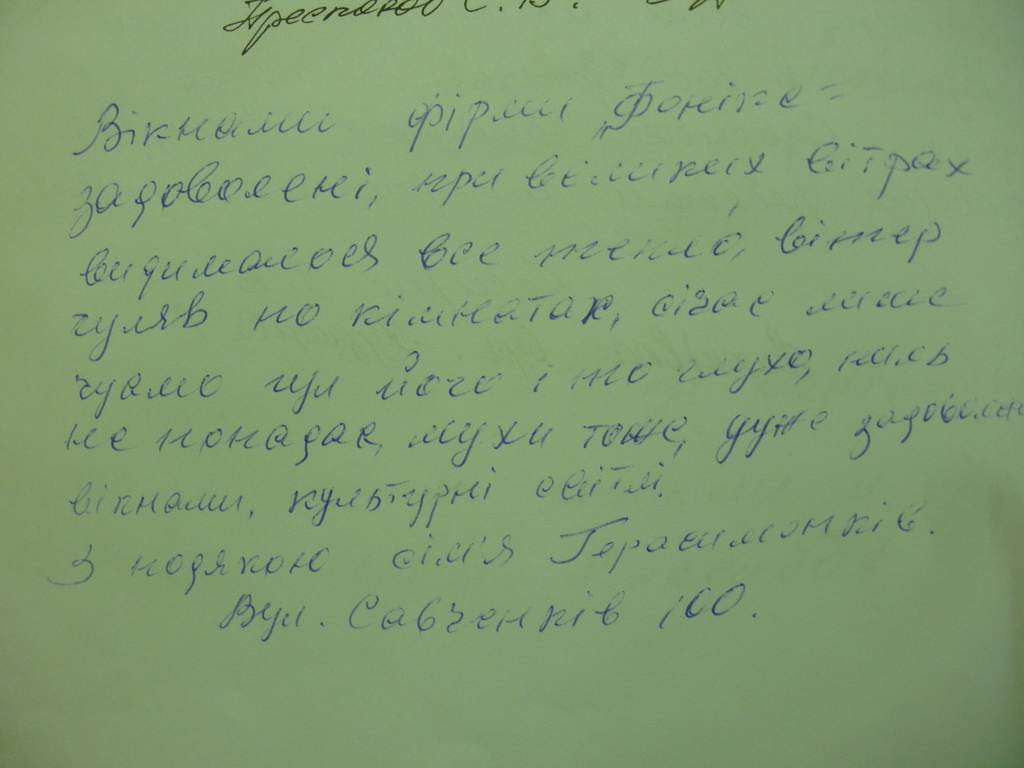 Вікнами фірми „Фоніка"
задоволені, при великих вітрах
видималося все тепло, вітер
гуляв по кімнатах, січас лише
чуємо гул його і то глухо, пиль
не попадає, мухи тоже, дуже задоволені
вікнами, культурні світлі.
З подякою сім'я Герасимонків.
Вул. Савченків 100.